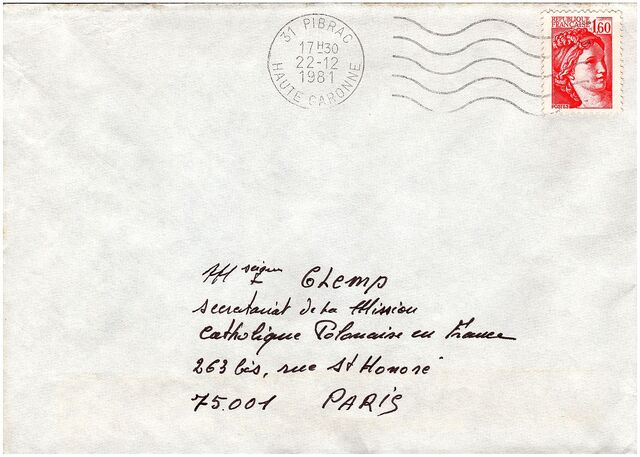 31 PIBRAC
17H30
22-12
1981
HAUTE GARONNE
REPUBLIQUE
FRANÇAISE 1,60
POSTES
Mseigneur Glemp
secretariat de la Mission
Catholique Polonaise en France
263 bis, rue St Honoré
75.001 PARIS